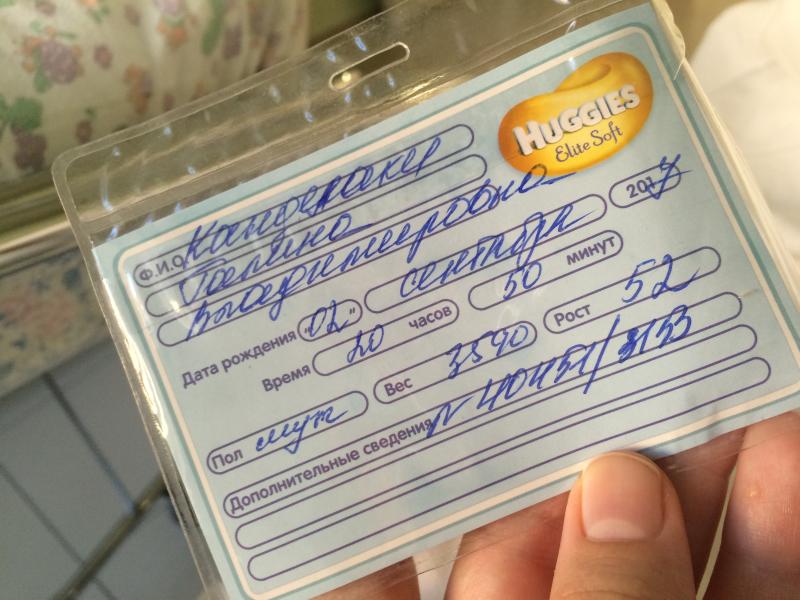 HUGGIES
Elite Soft
Ф.И.О.
Галина
Владимировна
Дата рождения "02" сентября 2017
Время 20 часов 50 минут
Пол муж Вес 3590 Рост 52
Дополнительные сведения № 40451/3153